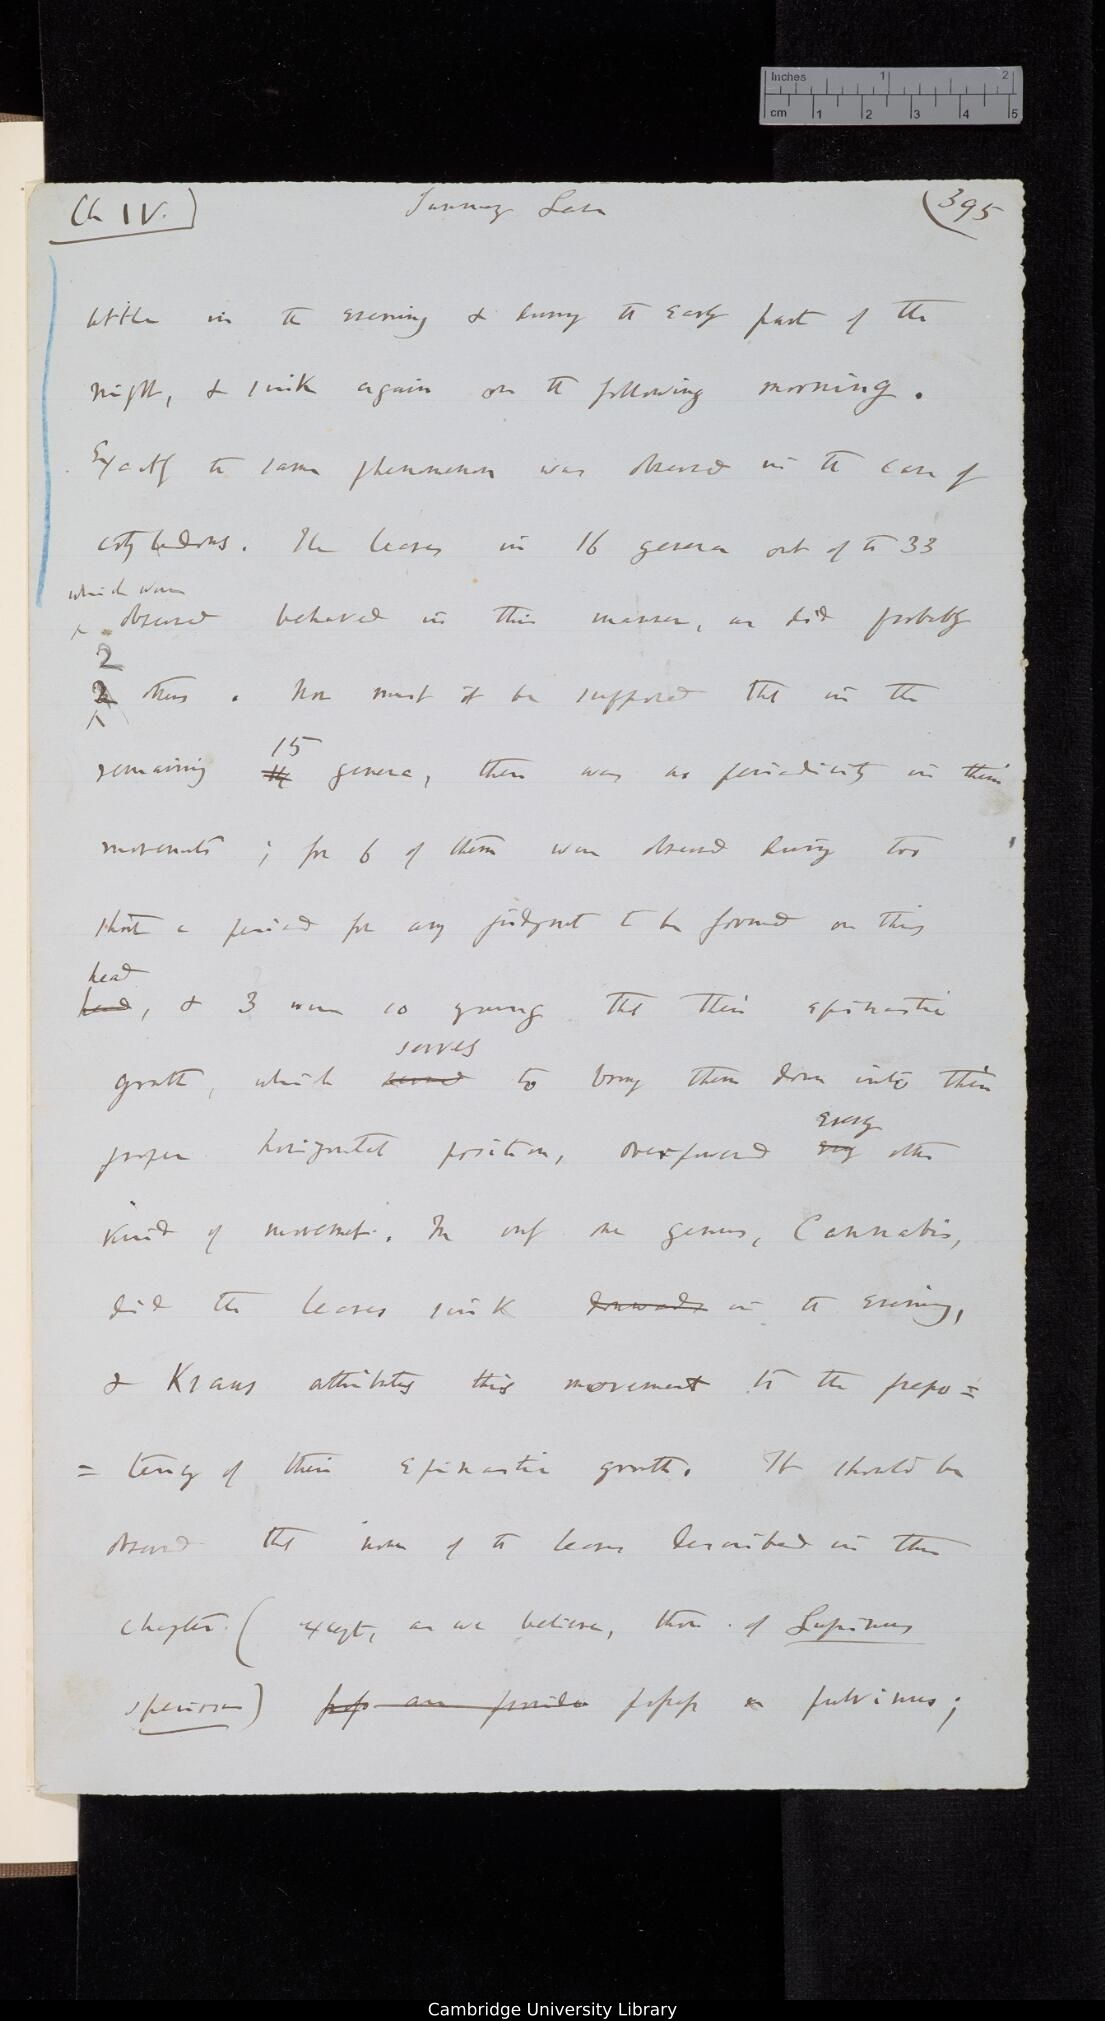 Inches 1 2
cm 1 2 3 4 5
Ch IV.
Summary Leaves
(395
little in the evening & during the early part of the
night, & sink again on the following morning.
Exactly the same phenomenon was observed in the case of
cotyledons. The leaves in 16 genera out of the 33
which were
observed behaved in this manner, as did probably
2
2 others. Nor must it be supposed that in the
15
remaining genera, there was no periodicity in their
movements; for 6 of them were observed during too
short a period for any judgment to be formed on this
head
head, & 3 were so young that their epinastic
serves
growth, which served to bring them down into their
every
proper horizontal position, overpowered every other
kind of movement. In only one genus, Cannabis,
did the leaves sink downwards in the evening,
& Kraus attributes this movement to the prepo=
=tency of their epinastic growth. It should be
observed that none of the leaves described in this
chapter (except, as we believe, those of Lupinus
speciosus) possess a pulvinus;
Cambridge University Library